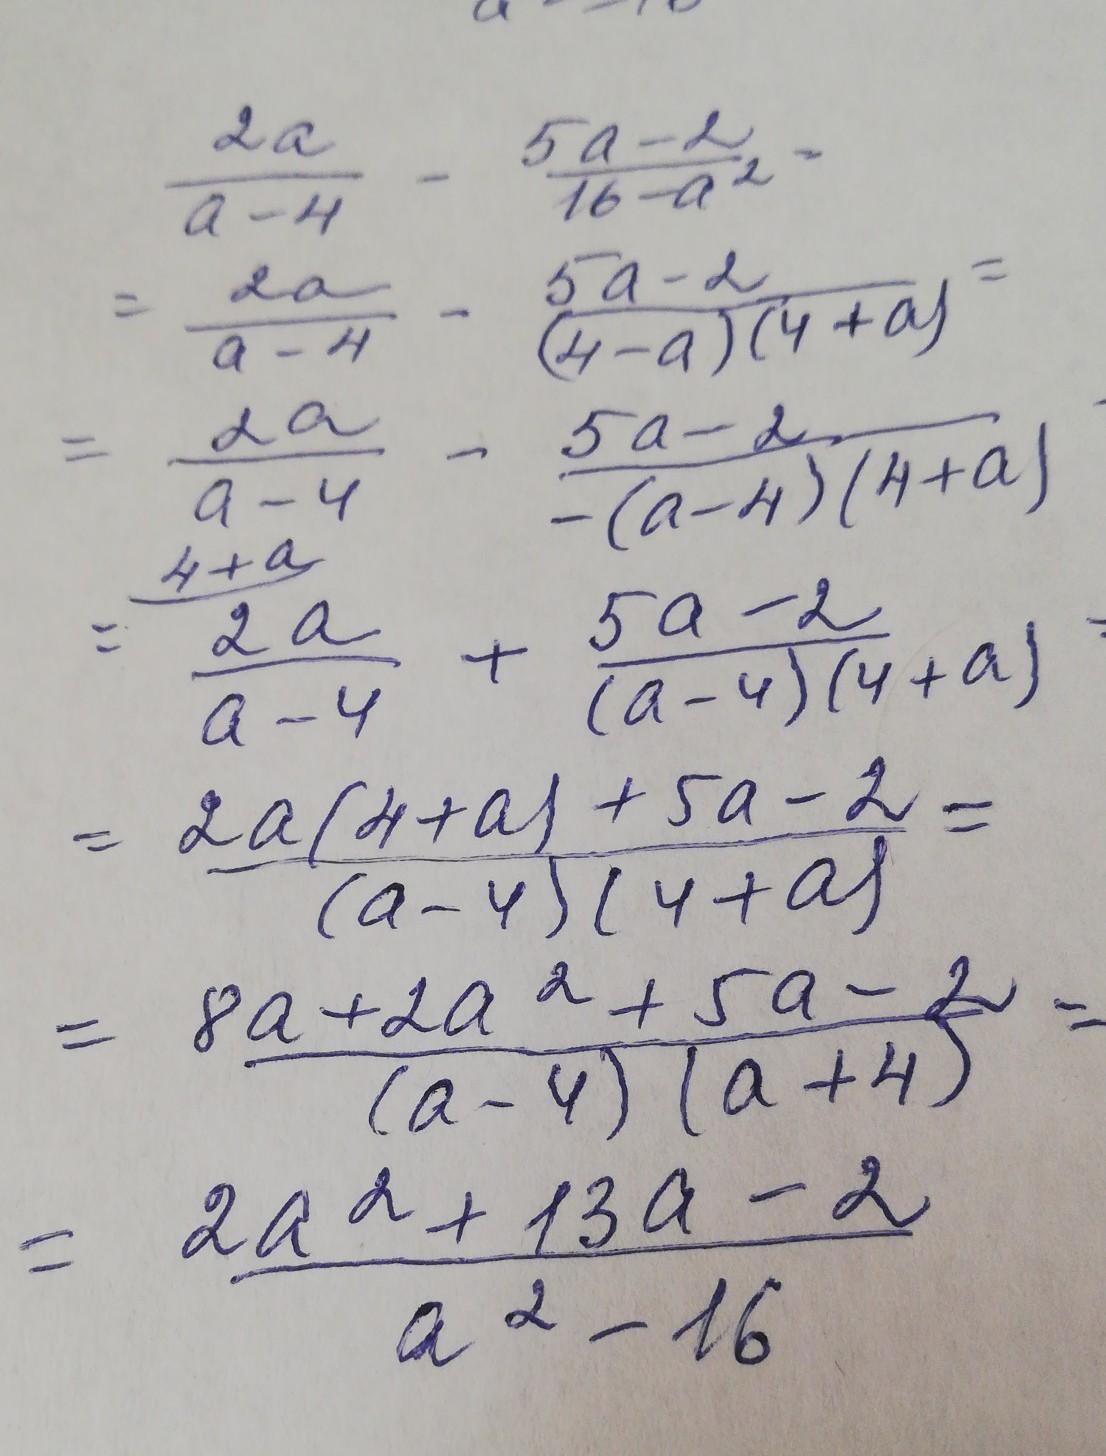 2a/(a-4) - (5a-2)/(16-a²) =
= 2a/(a-4) - (5a-2)/((4-a)(4+a)) =
= 2a/(a-4) - (5a-2)/(-(a-4)(4+a)) =
4+a
= 2a/(a-4) + (5a-2)/((a-4)(4+a)) =
= (2a(4+a)+5a-2)/((a-4)(4+a)) =
= (8a+2a²+5a-2)/((a-4)(a+4)) =
= (2a²+13a-2)/(a²-16)